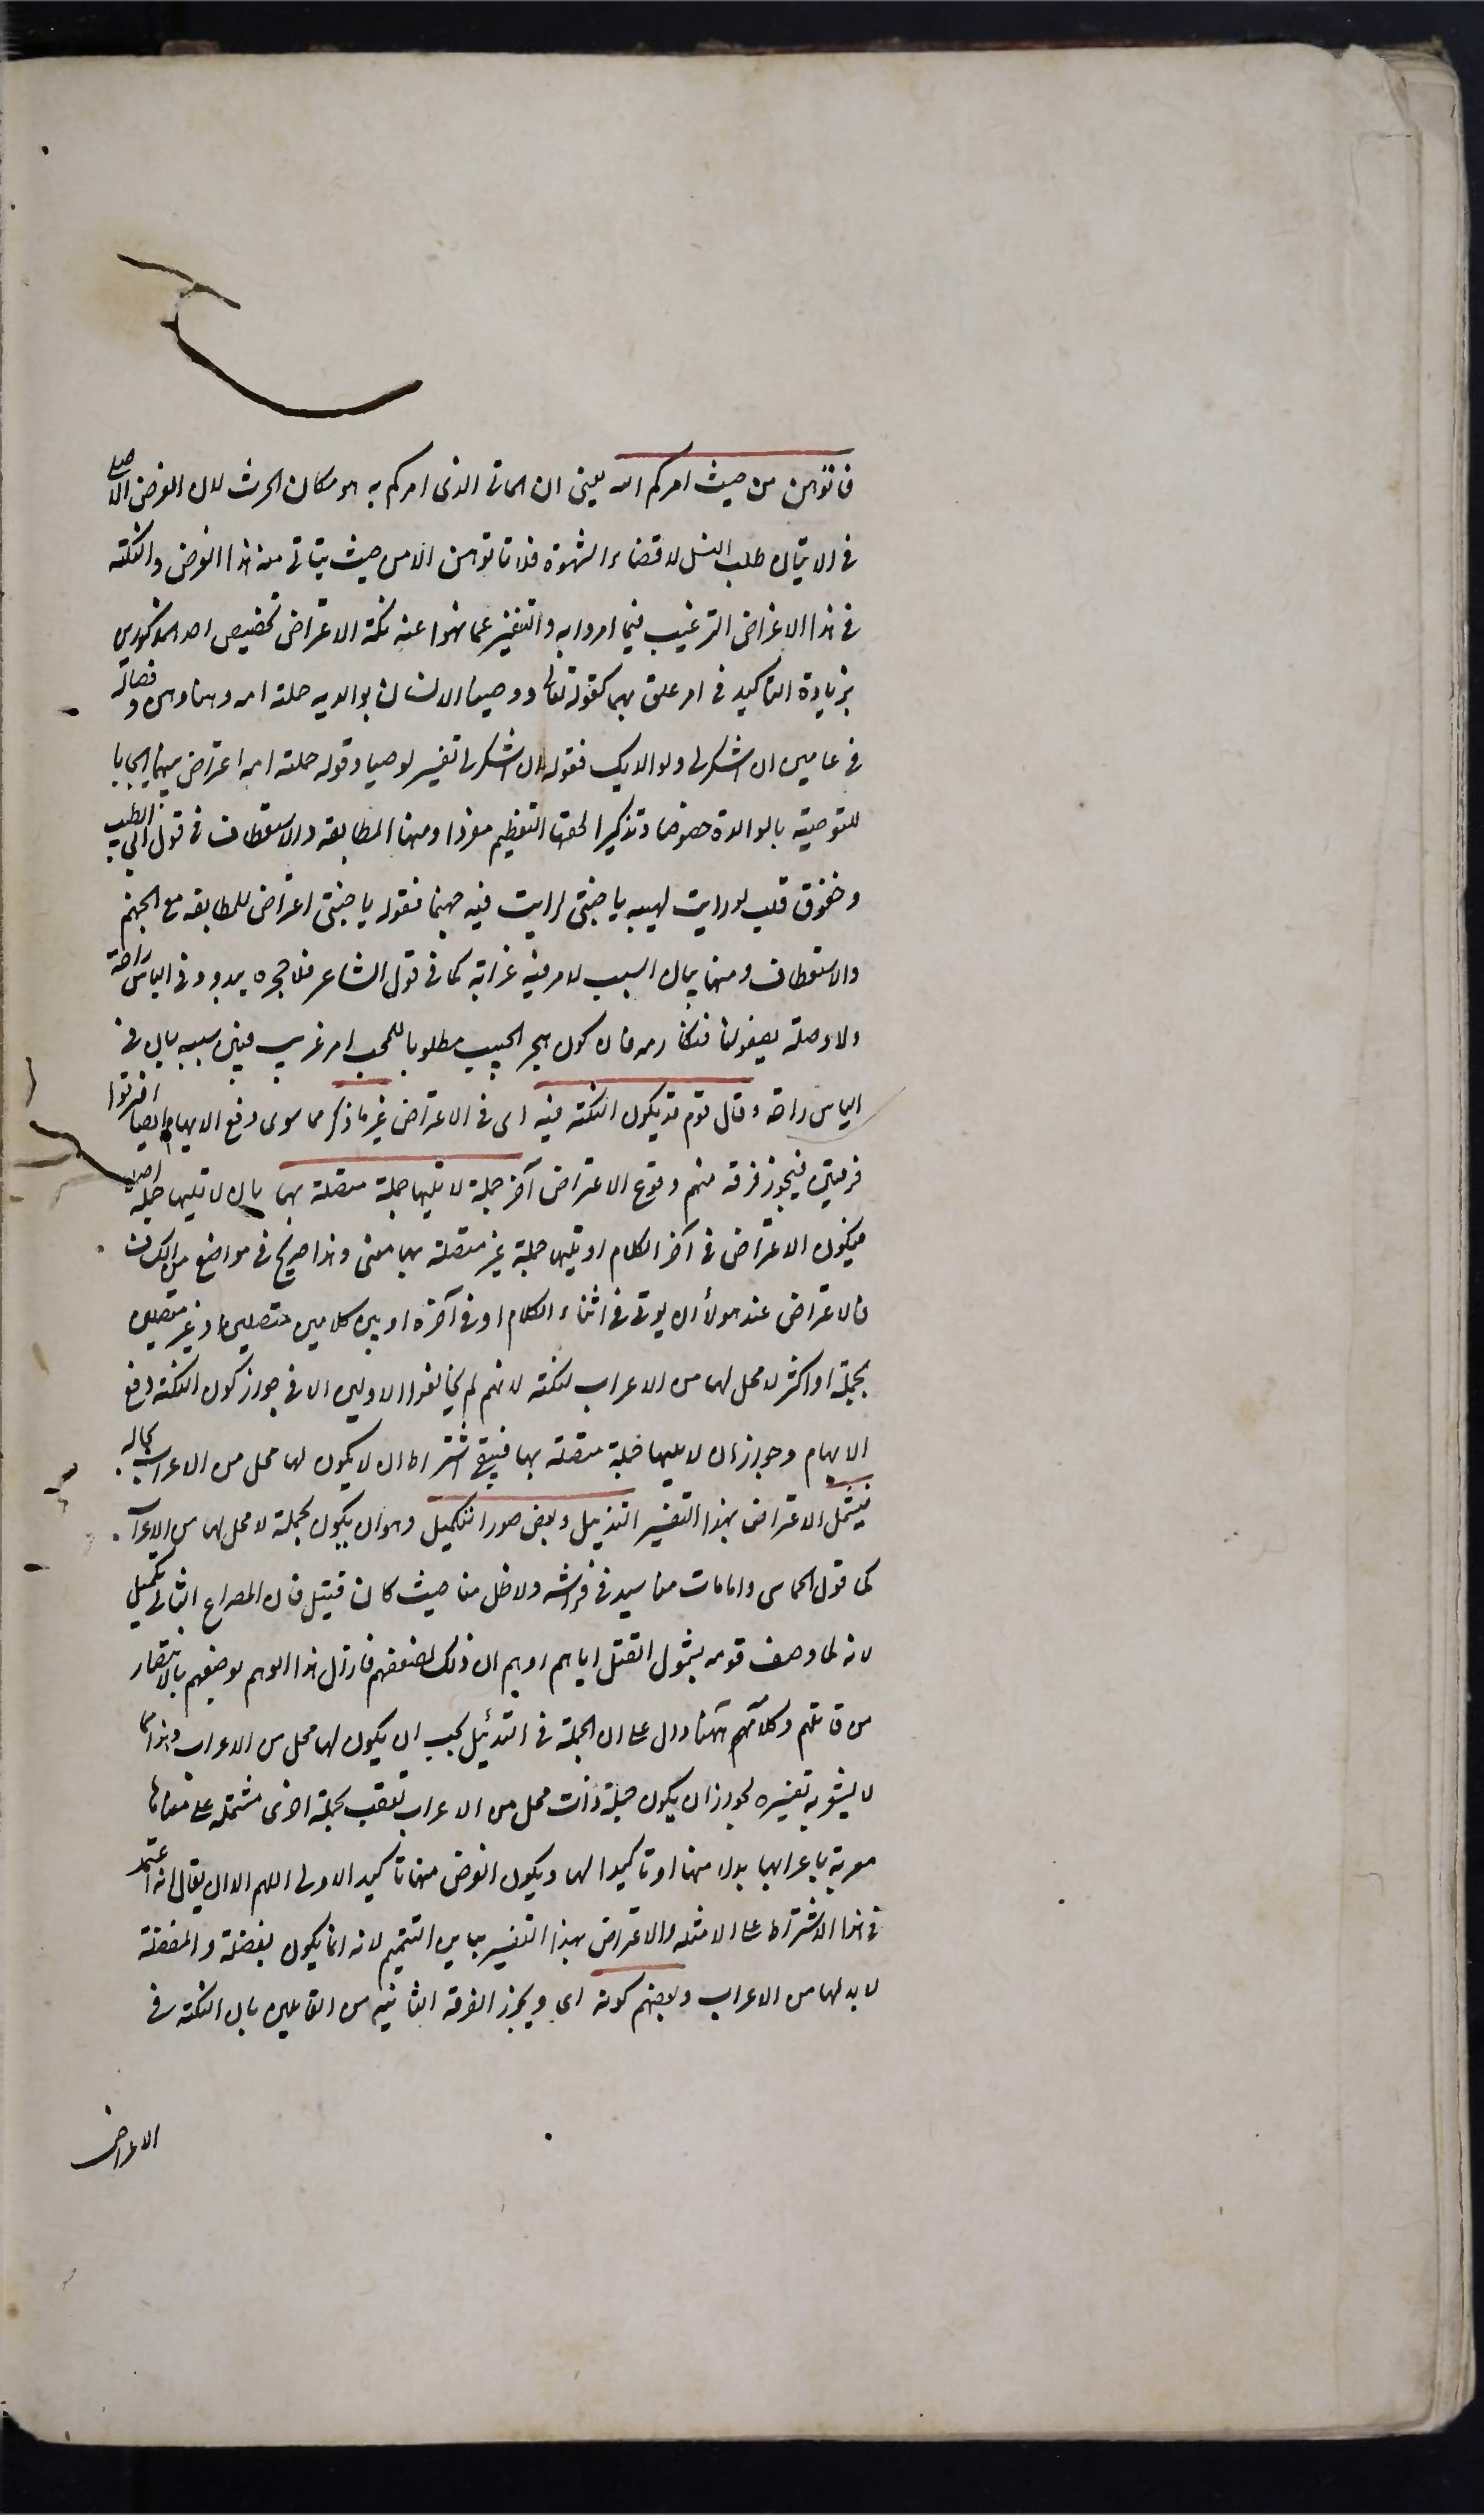 فاتوهن من حيث امركم الله يعنى ان الماتى الذى امركم به هو مكان الحرث لان الغرض الاصلى
فى الاتيان طلب النسل لا قضاء الشهوة فلا تاتوهن الا من حيث يتاتى منه هذا الغرض والنكتة
فى هذا الاعتراض الترغيب فيما امروا به والتنفير عما نهوا عنه نكتة الاعتراض تخصيص احد المذكورين
بزيادة التاكيد فى امر علق بهما كقوله تعالى ووصينا الانسان بوالديه حملته امه وهنا وهن وفصاله
فى عامين ان اشكر لى ولوالديك فقوله ان اشكر لى تفسير لوصينا وقوله حملته امه اعتراض بينهما ايجابا
للتوصية بالوالدة خصوصا وتذكيرا لحقها العظيم مفردا ومنها المطابقة والاستعطاف فى قول ابى الطيب
وخفوق قلب لو رايت لهيبه يا جنتى لرايت فيه جهنما فقوله يا جنتى اعتراض للمطابقة مع الجهنم
والاستعطاف ومنها بيان السبب لامر فيه غرابة كما فى قول الشاعر فلا هجره يبدو وفى الياس راحة
ولا وصله يصفو لنا فنكارمه فان كون هجر الحبيب مطلوبا للمحب امر غريب فبين سببه بان فى
الياس راحة وقال قوم قد يكون النكتة فيه اى فى الاعتراض غير ما ذكر مما سوى دفع الايهام وايضا افترقوا
فرقتين فيجوز فرقة منهم وقوع الاعتراض آخر جملة لا تليها جملة متصلة بها بان لا تليها جملة اصلا
فيكون الاعتراض فى آخر الكلام او تليها جملة غير متصلة بها معنى وهذا صريح فى مواضع من الكشاف
فالاعتراض عند هولاء ان يوتى فى اثناء الكلام او فى آخره او بين كلامين متصلين او غير متصلين
بجملة او اكثر لا محل لها من الاعراب لنكتة لانهم لم يخالفوا الاولين الا فى جواز كون النكتة دفع
الايهام وجواز ان لا يليها جملة متصلة بها فيبقى اشتراط ان لا يكون لها محل من الاعراب بحاله
فيشمل الاعتراض بهذا التفسير التذييل وبعض صور التكميل وهو ان يكون بجملة لا محل لها من الاعراب
كما قول الحماسى وما مات منا سيد فى فراشه ولا طل منا حيث كان قتيل فان المصراع الثانى تكميل
لانه لما وصف قومه بشمول القتل اياهم اوهم ان ذلك لضعفهم فازال هذا الوهم بوصفهم بالانتصار
من قاتلهم وكلامهم ههنا دال على ان الجملة فى التذييل يجب ان يكون لها محل من الاعراب وهذا مما
لا يشعر به تفسيره لجواز ان يكون جملة ذات محل من الاعراب تعقب بجملة اخرى مشتملة على معناها
معربة باعرابها بدلا منها او تاكيدا لها ويكون الغرض منها تاكيد الاولى اللهم الا ان يقال انه اعتمد
فى هذا الاشتراط على الامثلة والاعتراض بهذا التفسير يباين التتميم لانه انما يكون بفضلة والفضلة
لا بد لها من الاعراب وبعضهم كونه اى ويجوز الفرقة الثانية من القايلين بان النكتة فى
الاعتراض